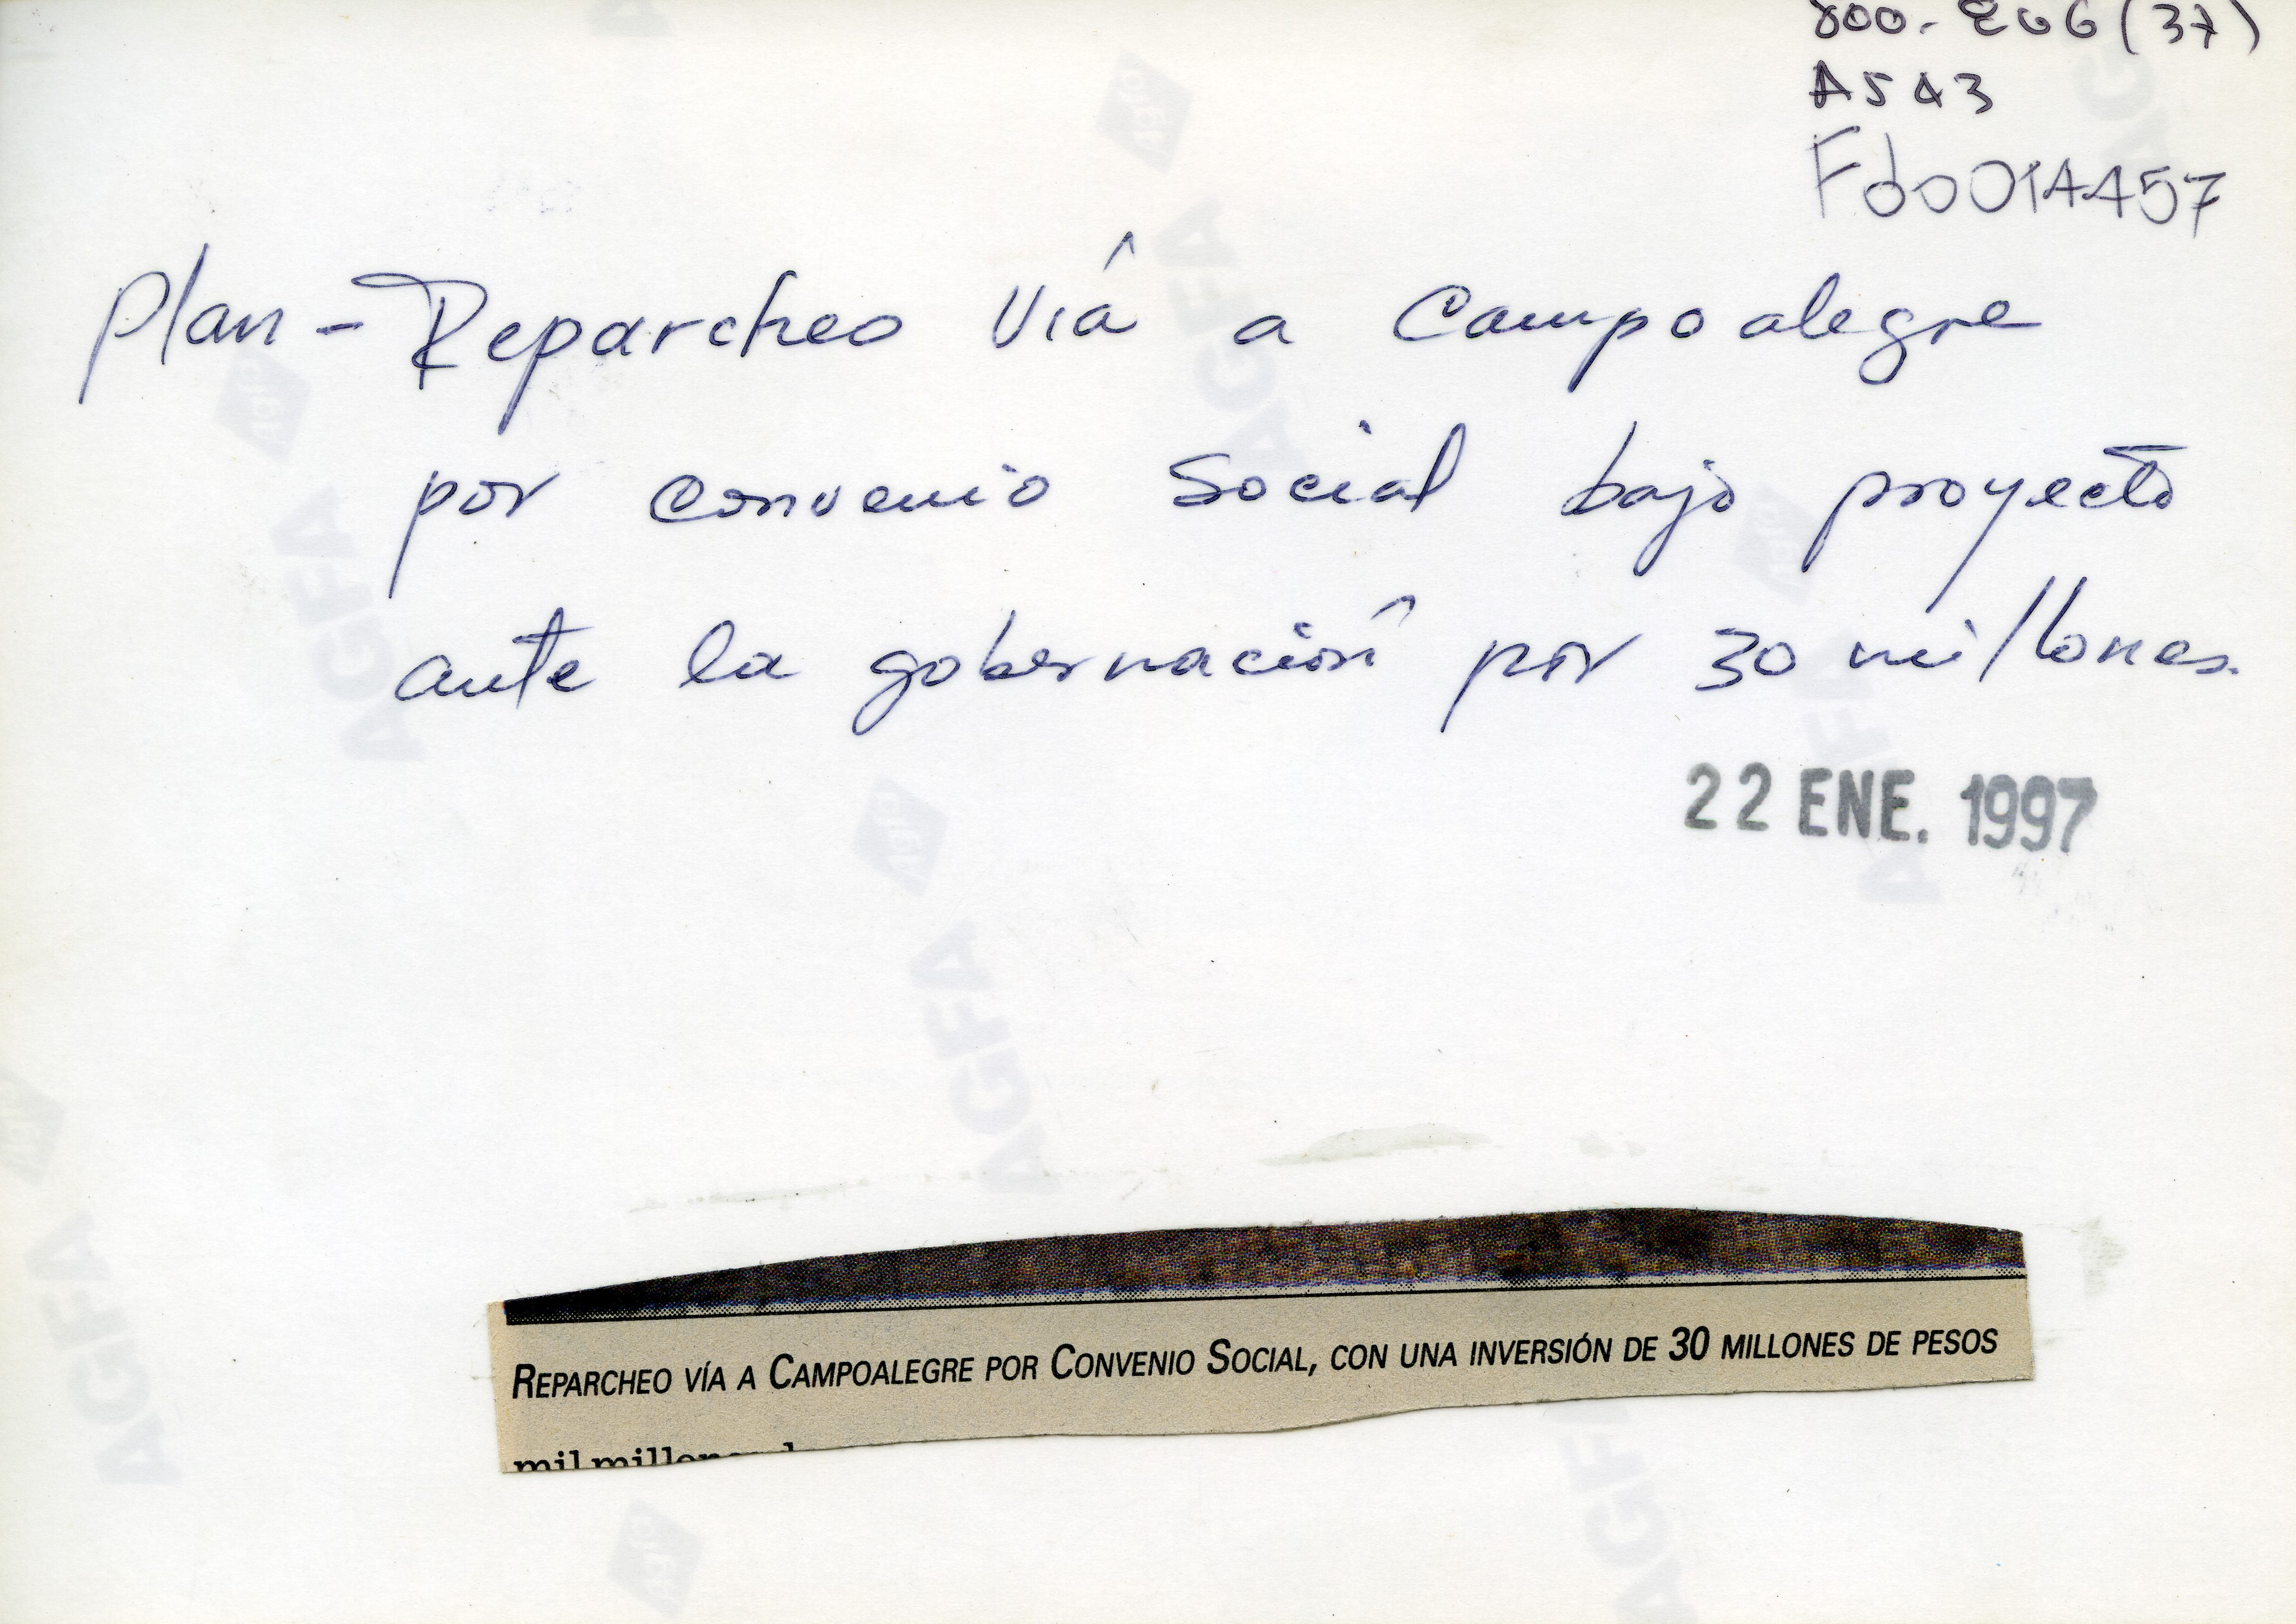 800-206(37)
A543
Fd0014457
Plan - Reparcheo Vía a Campoalegre
por convenio Social bajo proyecto
ante la gobernación por 30 millones.
22 ENE. 1997
REPARCHEO VÍA A CAMPOALEGRE POR CONVENIO SOCIAL, CON UNA INVERSIÓN DE 30 MILLONES DE PESOS
mil millones
AGFA
AGFA
AGFA
AGFA
AGFA
AGFA
AGFA